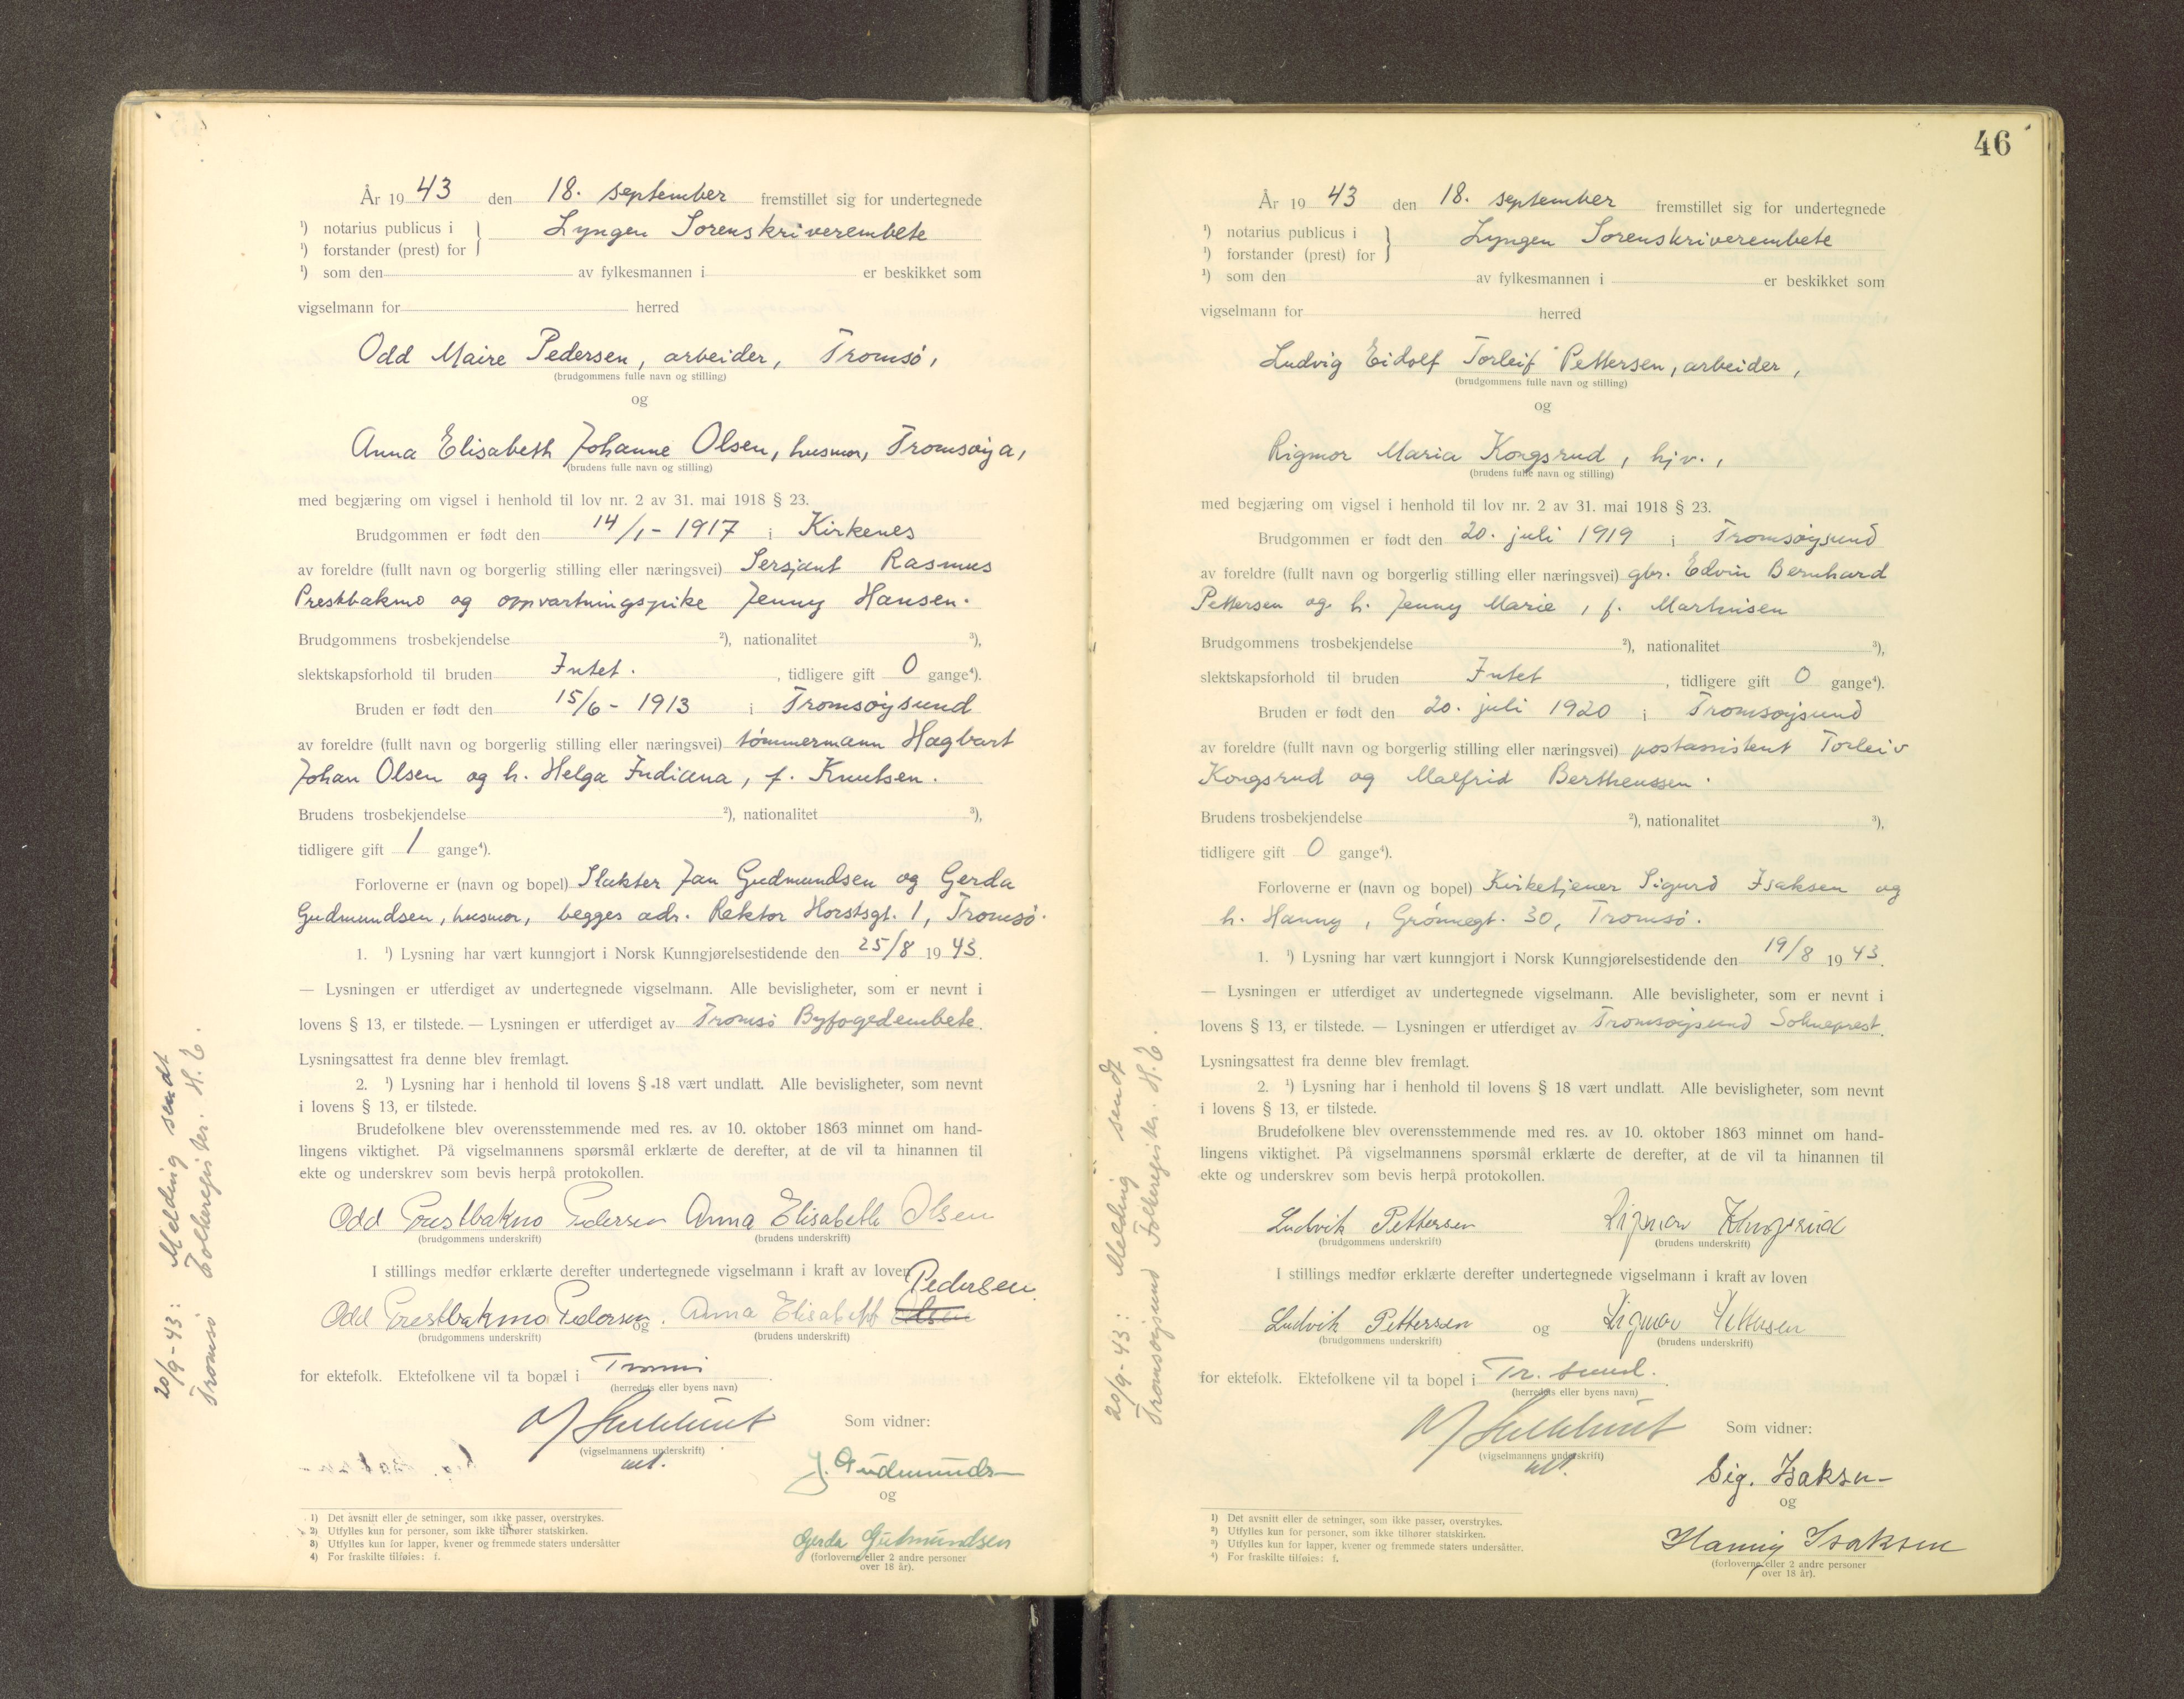 År 19 43 den 18. september fremstillet sig for undertegnede
¹) notarius publicus i
Lyngen Sorenskriverembete
¹) forstander (prest) for
¹) som den av fylkesmannen i er beskikket som
vigselmann for herred
Odd Maire Pedersen, arbeider, Tromsö,
(brudgommens fulle navn og stilling)
og
Anna Elisabeth Johanne Olsen, husmor, Tromsøya,
(brudens fulle navn og stilling)
med begjæring om vigsel i henhold til lov nr. 2 av 31. mai 1918 § 23.
Brudgommen er født den 14/1 - 1917 i Kirkenes
av foreldre (fullt navn og borgerlig stilling eller næringsvei) Sersjant Rasmus
Prestbakmo og oppvartningspike Jenny Hansen.
Brudgommens trosbekjendelse ²), nationalitet ³),
slektskapsforhold til bruden Intet. , tidligere gift 0 gange⁴).
Bruden er født den 15/6 - 1913 i Tromsøysund
av foreldre (fullt navn og borgerlig stilling eller næringsvei) tömmermann Hagbart
Johan Olsen og h. Helga Indiana, f. Knutsen.
Brudens trosbekjendelse ²), nationalitet ³),
tidligere gift 1 gange⁴).
Forloverne er (navn og bopel) Slakter Jan Gudmundsen og Gerda
Gudmundsen, husmor, begges adr. Rektor Horstsgt. 1, Tromsö.
1. ¹) Lysning har vært kunngjort i Norsk Kunngjørelsestidende den 25/8 19 43.
— Lysningen er utferdiget av undertegnede vigselmann. Alle bevisligheter, som er nevnt i
lovens § 13, er tilstede. — Lysningen er utferdiget av Tromsö Byfogedembete.
Lysningsattest fra denne blev fremlagt.
2. ¹) Lysning har i henhold til lovens § 18 vært undlatt. Alle bevisligheter, som nevnt
i lovens § 13, er tilstede.
Brudefolkene blev overensstemmende med res. av 10. oktober 1863 minnet om hand-
lingens viktighet. På vigselmannens spørsmål erklærte de derefter, at de vil ta hinannen til
ekte og underskrev som bevis herpå protokollen.
Odd Prestbakmo Pedersen Anna Elisabeth Olsen
(brudgommens underskrift) (brudens underskrift)
I stillings medfør erklærte derefter undertegnede vigselmann i kraft av loven
Pedersen.
Odd Prestbakmo Pedersen og Anna Elisabeth Olsen
(brudgommens underskrift) (brudens underskrift)
for ektefolk. Ektefolkene vil ta bopæl i Tromsö
(herredets eller byens navn)
Som vidner:
(vigselmannens underskrift)
J. Gudmunds
og
Gerda Gudmundsen
(forloverne eller 2 andre personer
over 18 år).
1) Det avsnitt eller de setninger, som ikke passer, overstrykes.
2) Utfylles kun for personer, som ikke tilhører statskirken.
3) Utfylles kun for lapper, kvener og fremmede staters undersåtter
4) For fraskilte tilføies: f.
20/9-43: Melding sendt
Tromsö Folkeregister. H.E.
46
År 19 43 den 18. september fremstillet sig for undertegnede
¹) notarius publicus i
Lyngen Sorenskriverembete
¹) forstander (prest) for
¹) som den av fylkesmannen i er beskikket som
vigselmann for herred
Ludvig Eidolf Torleif Pettersen, arbeider,
(brudgommens fulle navn og stilling)
og
Rigmor Maria Kongsrud, hjv.,
(brudens fulle navn og stilling)
med begjæring om vigsel i henhold til lov nr. 2 av 31. mai 1918 § 23.
Brudgommen er født den 20. juli 1919 i Tromsøysund
av foreldre (fullt navn og borgerlig stilling eller næringsvei) gbr. Edvin Bernhard
Pettersen og h. Jenny Marie, f. Martinisen
Brudgommens trosbekjendelse ²), nationalitet ³),
slektskapsforhold til bruden Intet , tidligere gift 0 gange⁴).
Bruden er født den 20. juli 1920 i Tromsøysund
av foreldre (fullt navn og borgerlig stilling eller næringsvei) postassistent Torleiv
Kongsrud og Malfrid Bertheussen.
Brudens trosbekjendelse ²), nationalitet ³),
tidligere gift 0 gange⁴).
Forloverne er (navn og bopel) Kirketjener Sigurd Isaksen og
h. Hanny, Grönnegt. 30, Tromsö.
1. ¹) Lysning har vært kunngjort i Norsk Kunngjørelsestidende den 19/8 19 43.
— Lysningen er utferdiget av undertegnede vigselmann. Alle bevisligheter, som er nevnt i
lovens § 13, er tilstede. — Lysningen er utferdiget av Tromsøysund Sokneprest.
Lysningsattest fra denne blev fremlagt.
2. ¹) Lysning har i henhold til lovens § 18 vært undlatt. Alle bevisligheter, som nevnt
i lovens § 13, er tilstede.
Brudefolkene blev overensstemmende med res. av 10. oktober 1863 minnet om hand-
lingens viktighet. På vigselmannens spørsmål erklærte de derefter, at de vil ta hinannen til
ekte og underskrev som bevis herpå protokollen.
Ludvik Pettersen Rigmor Kongsrud
(brudgommens underskrift) (brudens underskrift)
I stillings medfør erklærte derefter undertegnede vigselmann i kraft av loven
Ludvik Pettersen og Rigmor Pettersen
(brudgommens underskrift) (brudens underskrift)
for ektefolk. Ektefolkene vil ta bopel i Tr. sund.
(herredets eller byens navn)
Som vidner:
(vigselmannens underskrift)
Sig. Isaksen
og
Hanny Isaksen
(forloverne eller 2 andre personer
over 18 år).
1) Det avsnitt eller de setninger, som ikke passer, overstrykes.
²) Utfylles kun for personer, som ikke tilhører statskirken.
³) Utfylles kun for lapper, kvener og fremmede staters undersåtter.
⁴) For fraskilte tilføies: f.
20/9-43: Melding sendt
Tromsøysund Folkeregister. H.E.